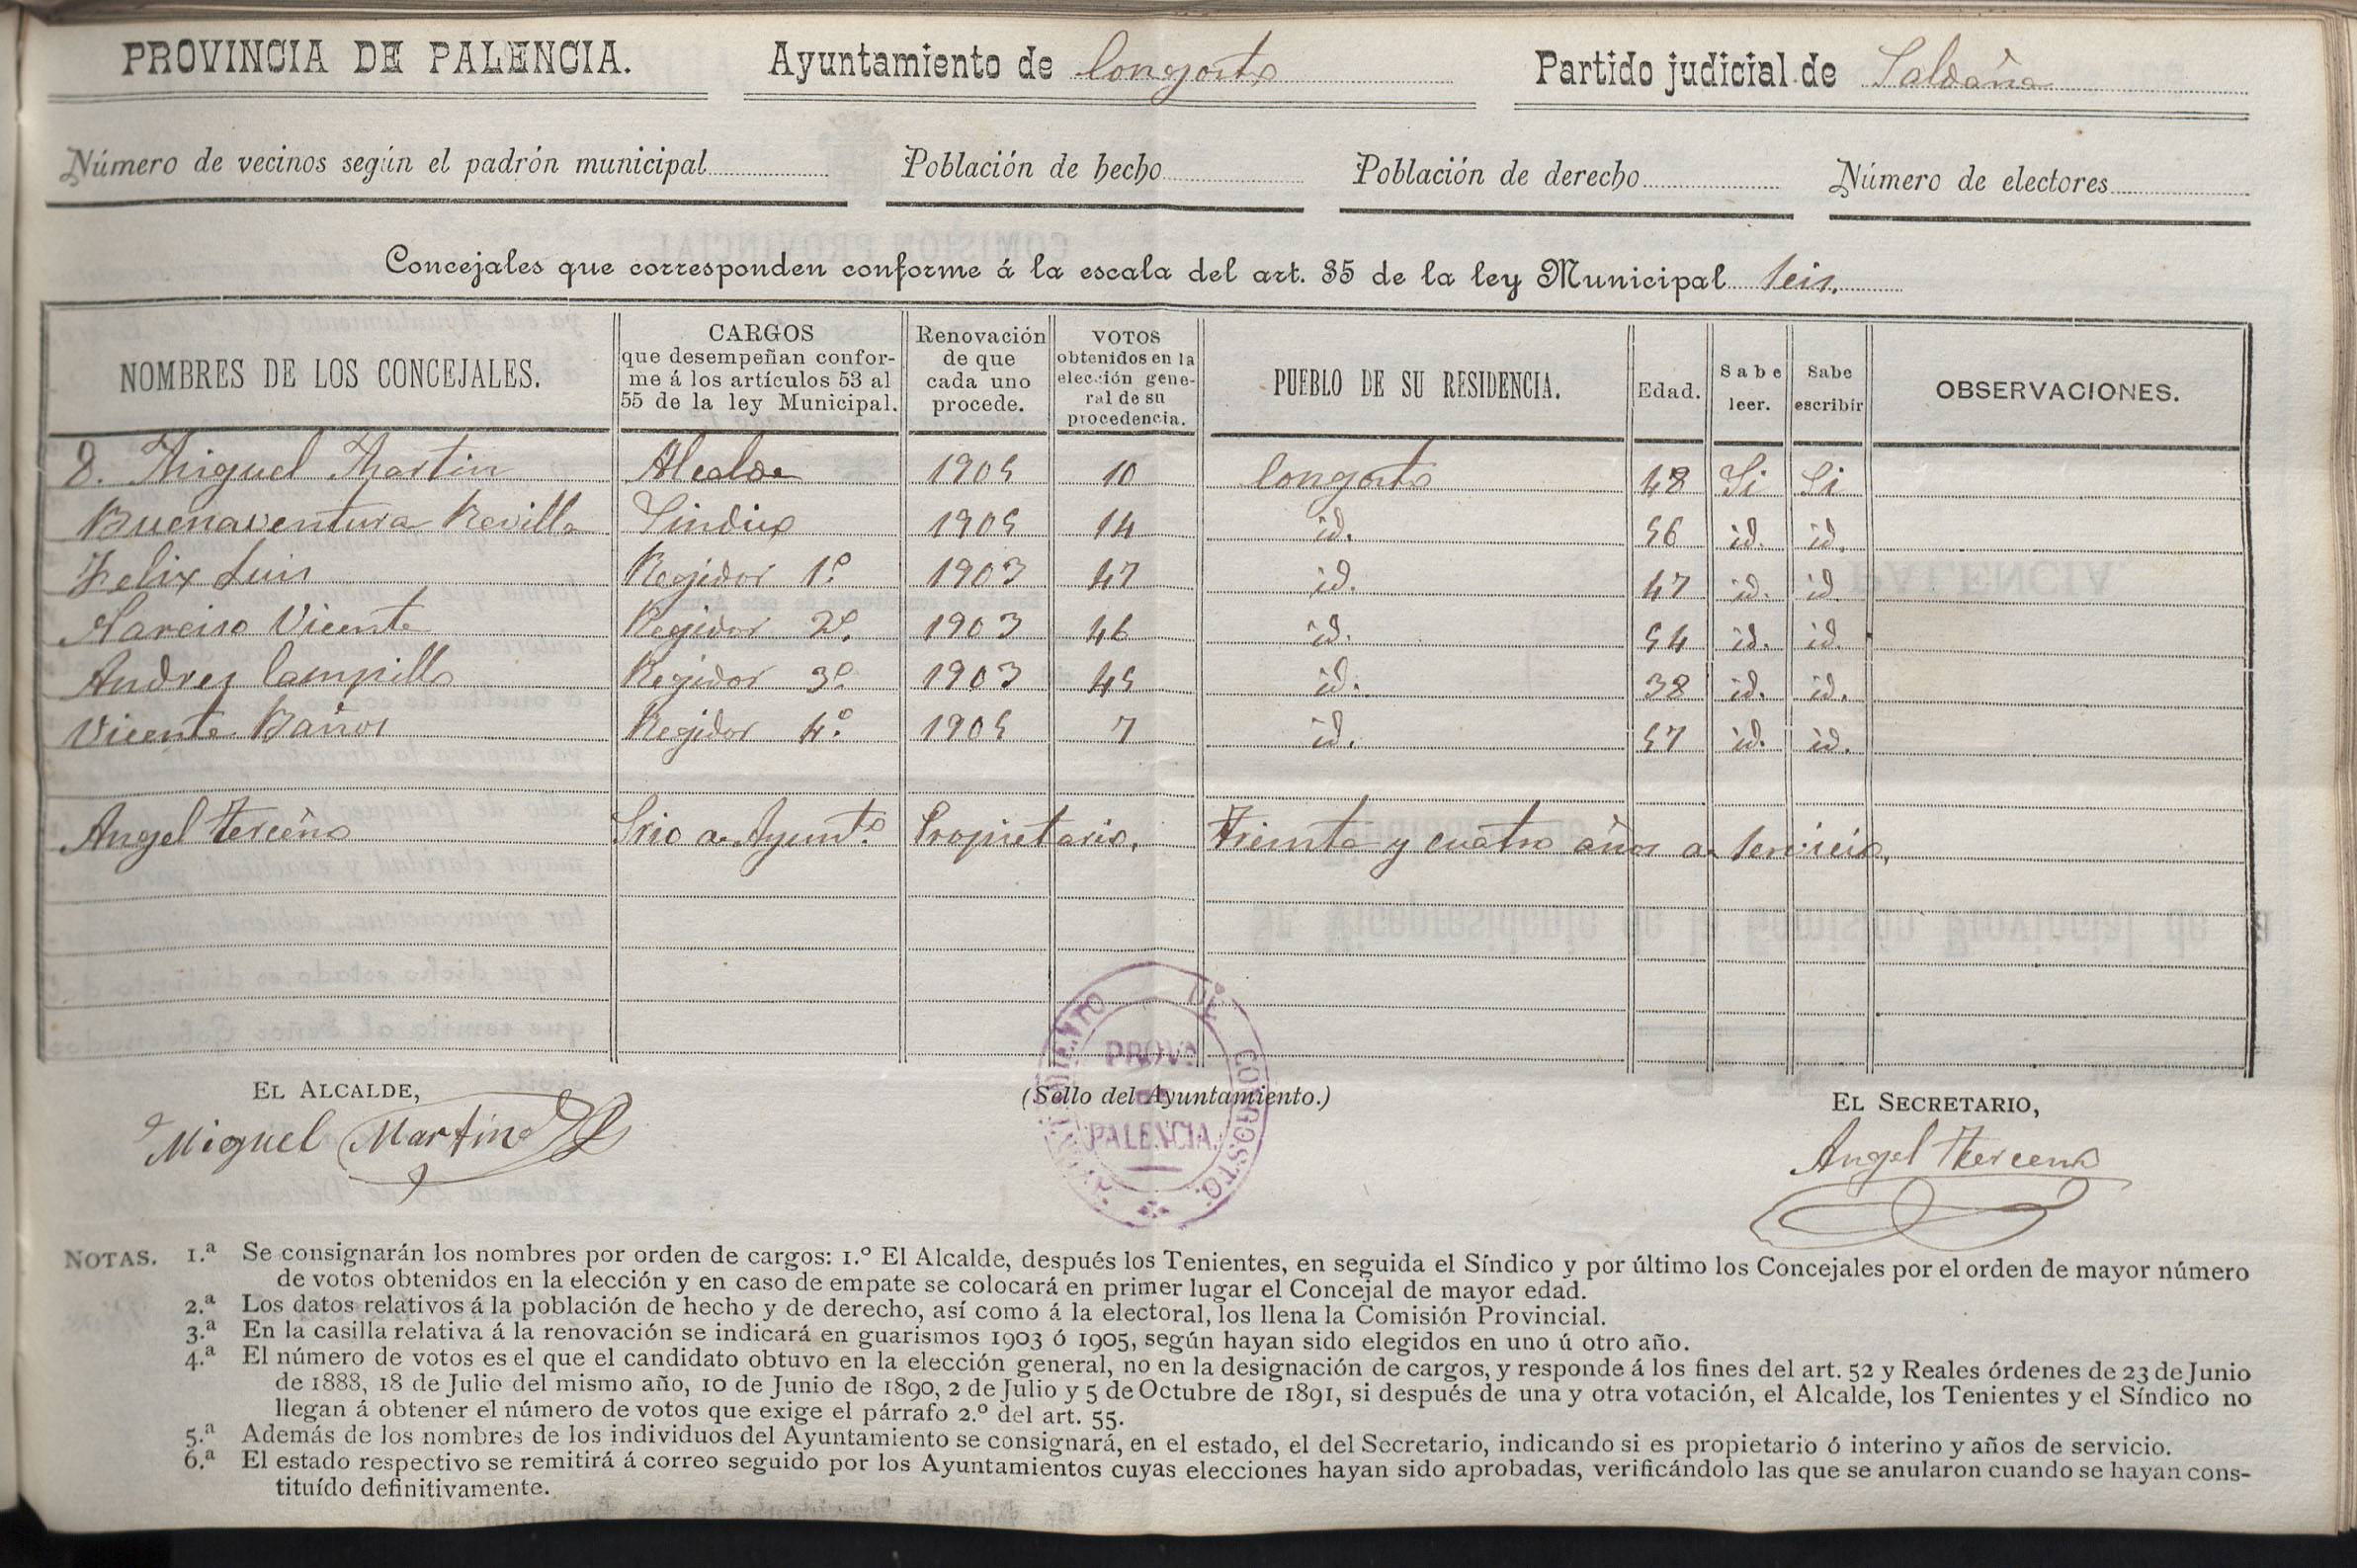 PROVINCIA DE PALENCIA. Ayuntamiento de Congosto Partido judicial de Saldaña
Número de vecinos según el padrón municipal Población de hecho Población de derecho Número de electores
Concejales que corresponden conforme á la escala del art. 35 de la ley Municipal seis.
NOMBRES DE LOS CONCEJALES. CARGOS que desempeñan confor-me á los artículos 53 al 55 de la ley Municipal. Renovación de que cada uno procede. VOTOS obtenidos en la elección gene-ral de su procedencia. PUEBLO DE SU RESIDENCIA. Edad. Sabe leer. Sabe escribir OBSERVACIONES.
D. Miguel Martin Alcalde 1905 10 Congosto 48 Si Si
Buenaventura Revilla Sindico 1905 14 id. 56 id. id.
Felix Luis Regidor 1.º 1903 47 id. 47 id. id.
Narciso Vicente Regidor 2.º 1903 46 id. 54 id. id.
Andres Campillo Regidor 3.º 1903 45 id. 38 id. id.
Vicente Baños Regidor 4.º 1905 7 id. 57 id. id.
Angel Terceño Srio de Ayunt.º Propietario. Treinta y cuatro años de servicio.
EL ALCALDE, (Sello del Ayuntamiento.) EL SECRETARIO,
Miguel Martin Angel Terceño
AYUNTAMIENTO DE CONGOSTO.
PROVA
DE
PALENCIA.
NOTAS. 1.ª Se consignarán los nombres por orden de cargos: 1.º El Alcalde, después los Tenientes, en seguida el Síndico y por último los Concejales por el orden de mayor número
de votos obtenidos en la elección y en caso de empate se colocará en primer lugar el Concejal de mayor edad.
2.ª Los datos relativos á la población de hecho y de derecho, así como á la electoral, los llena la Comisión Provincial.
3.ª En la casilla relativa á la renovación se indicará en guarismos 1903 ó 1905, según hayan sido elegidos en uno ú otro año.
4.ª El número de votos es el que el candidato obtuvo en la elección general, no en la designación de cargos, y responde á los fines del art. 52 y Reales órdenes de 23 de Junio
de 1888, 18 de Julio del mismo año, 10 de Junio de 1890, 2 de Julio y 5 de Octubre de 1891, si después de una y otra votación, el Alcalde, los Tenientes y el Síndico no
llegan á obtener el número de votos que exige el párrafo 2.º del art. 55.
5.ª Además de los nombres de los individuos del Ayuntamiento se consignará, en el estado, el del Secretario, indicando si es propietario ó interino y años de servicio.
6.ª El estado respectivo se remitirá á correo seguido por los Ayuntamientos cuyas elecciones hayan sido aprobadas, verificándolo las que se anularon cuando se hayan cons-
tituído definitivamente.